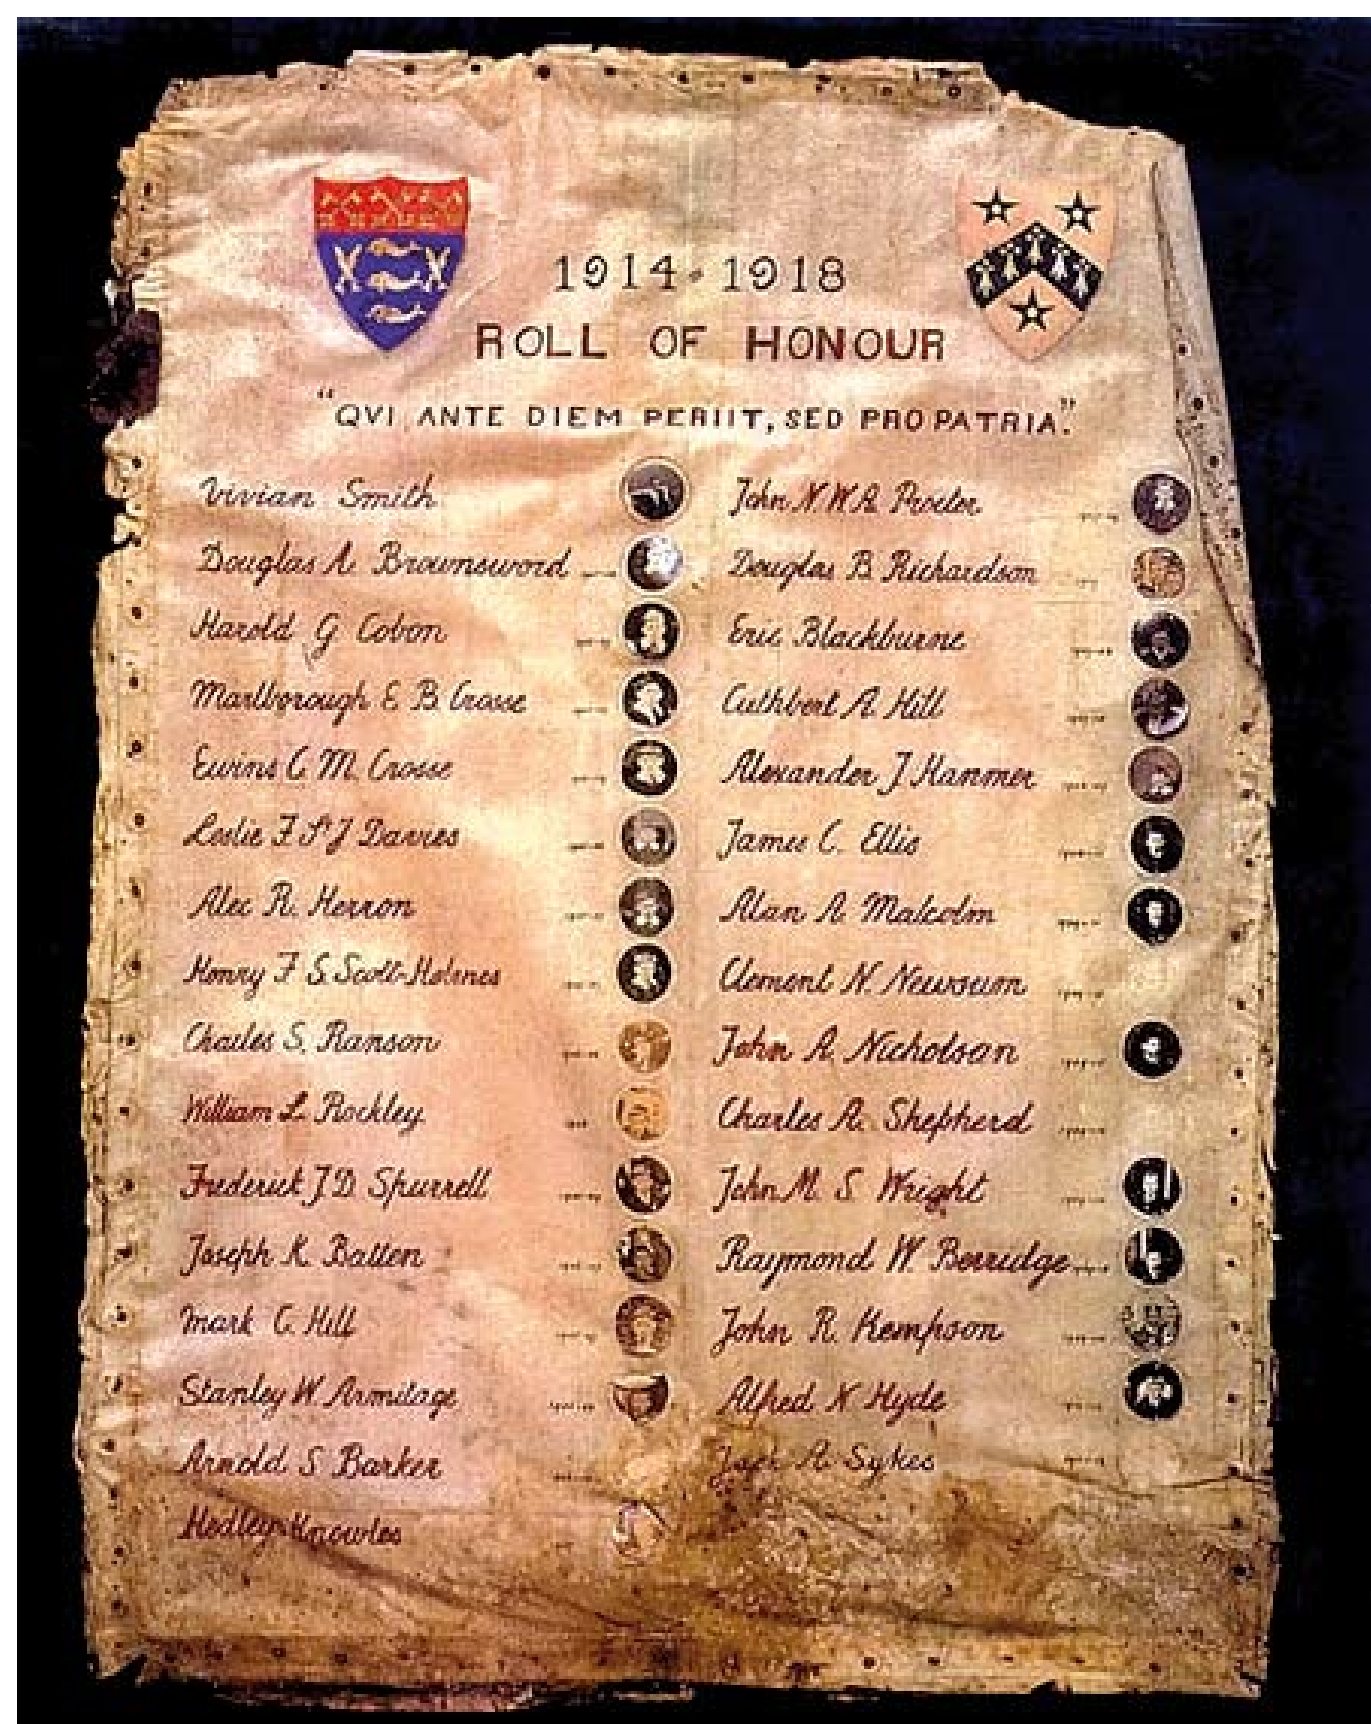 1914-1918
ROLL OF HONOUR
"QVI ANTE DIEM PERIIT, SED PRO PATRIA."
Vivian Smith
Douglas A. Brownsword
Harold G Cobon
Marlborough E B Crosse
Ewins C. M. Crosse
Leslie F. St J Davies
Alec R. Herron
Henry F S. Scott-Holmes
Charles S. Ranson
William L. Rockley
Frederick J D. Spurrell
Joseph K. Batten
Mark C. Hill
Stanley W. Armitage
Arnold S Barker
Hedley Knowles
John N. W. A. Procter
Douglas B. Richardson
Eric Blackburne
Cuthbert A. Hill
Alexander J Hanmer
James C. Ellis
Alan A Malcolm
Clement N. Newsum
John A. Nicholson
Charles A. Shepherd
John M. S. Wright
Raymond W. Berridge
John R. Kempson
Alfred N Hyde
Jack A. Sykes